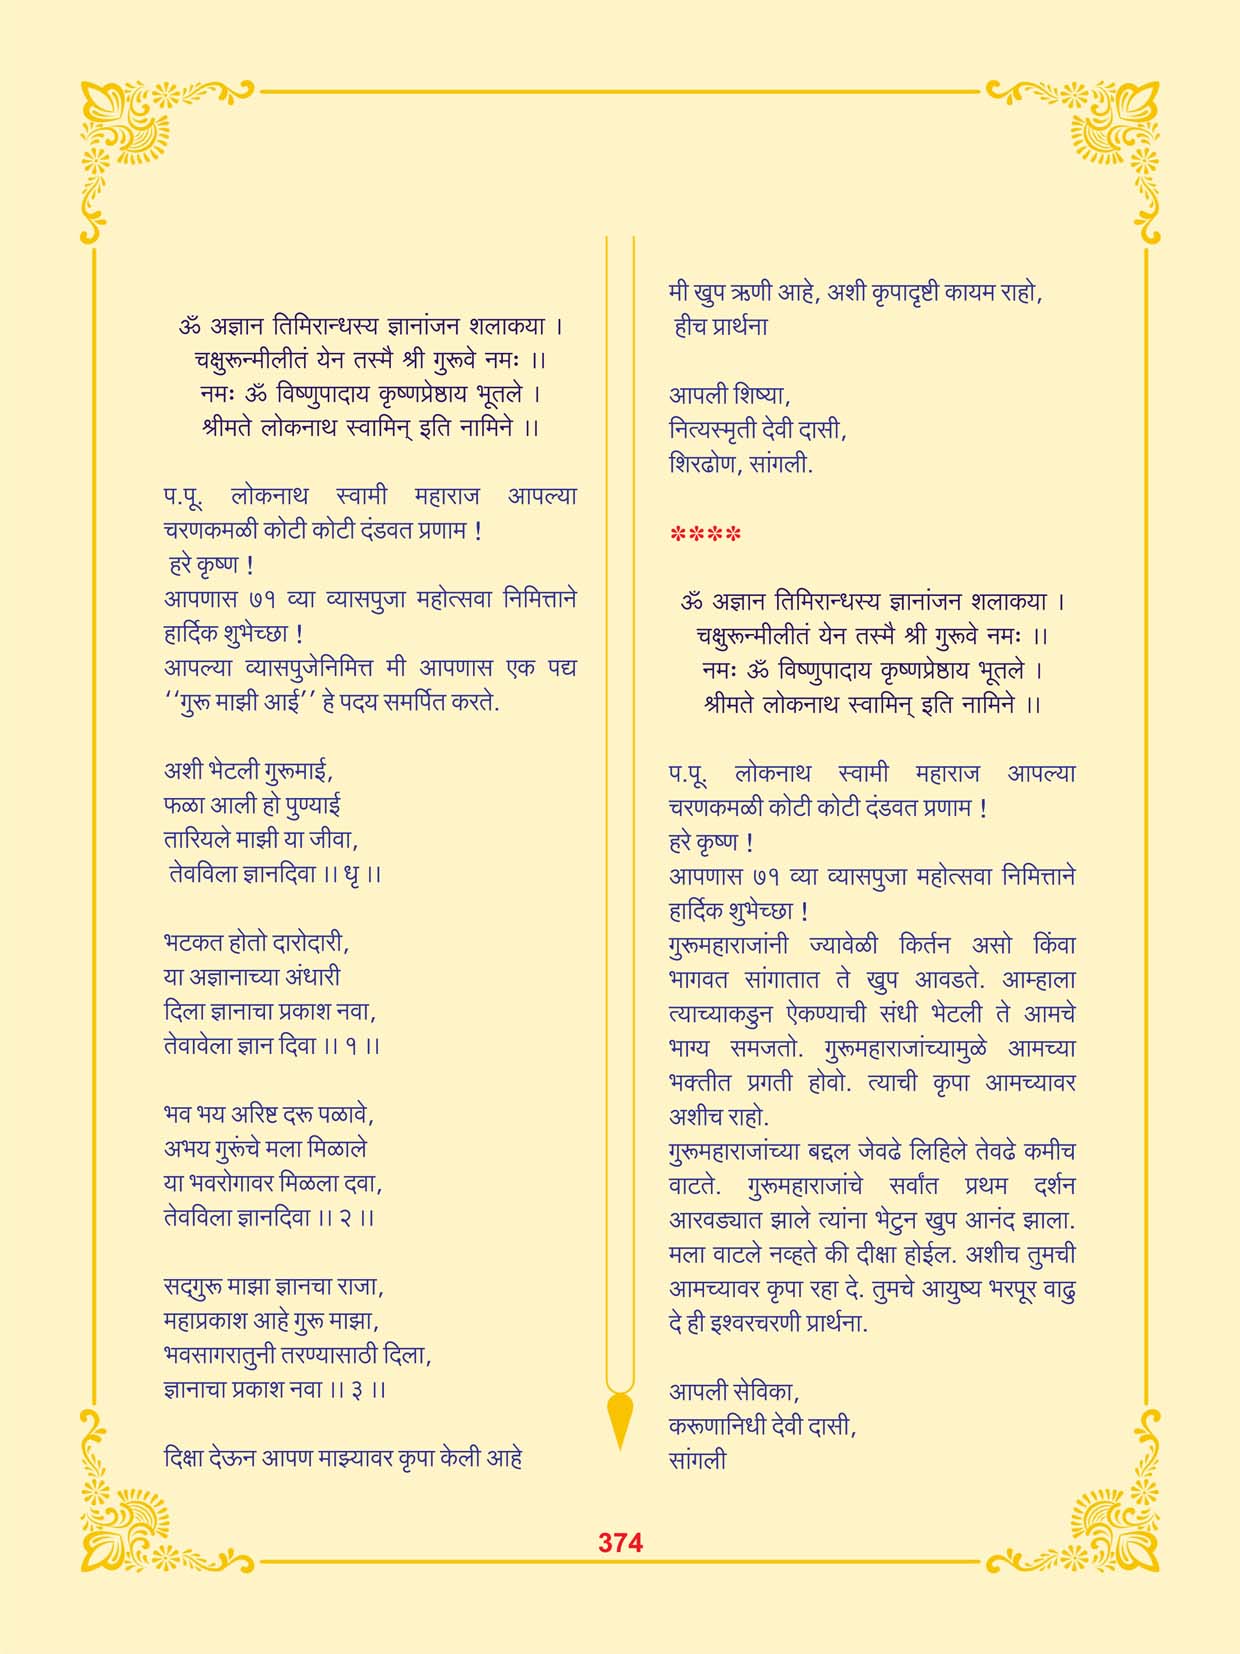 ॐ अज्ञान तिमिरान्धस्य ज्ञानांजन शलाकया ।
चक्षुरून्मीलीतं येन तस्मै श्री गुरूवे नमः ।।
नमः ॐ विष्णुपादाय कृष्णप्रेष्ठाय भूतले ।
श्रीमते लोकनाथ स्वामिन् इति नामिने ।।
प.पू. लोकनाथ स्वामी महाराज आपल्या
चरणकमळी कोटी कोटी दंडवत प्रणाम !
हरे कृष्ण !
आपणास ७१ व्या व्यासपुजा महोत्सवा निमित्ताने
हार्दिक शुभेच्छा !
आपल्या व्यासपुजेनिमित्त मी आपणास एक पद्य
‘‘गुरू माझी आई’’ हे पदय समर्पित करते.
अशी भेटली गुरूमाई,
फळा आली हो पुण्याई
तारियले माझी या जीवा,
तेवविला ज्ञानदिवा ।। धृ ।।
भटकत होतो दारोदारी,
या अज्ञानाच्या अंधारी
दिला ज्ञानाचा प्रकाश नवा,
तेवावेला ज्ञान दिवा ।। १ ।।
भव भय अरिष्ट दरू पळावे,
अभय गुरूंचे मला मिळाले
या भवरोगावर मिळला दवा,
तेवविला ज्ञानदिवा ।। २ ।।
सद्‌गुरू माझा ज्ञानचा राजा,
महाप्रकाश आहे गुरू माझा,
भवसागरातुनी तरण्यासाठी दिला,
ज्ञानाचा प्रकाश नवा ।। ३ ।।
दिक्षा देऊन आपण माझ्यावर कृपा केली आहे
मी खुप ऋणी आहे, अशी कृपादृष्टी कायम राहो,
हीच प्रार्थना
आपली शिष्या,
नित्यस्मृती देवी दासी,
शिरढोण, सांगली.
****
ॐ अज्ञान तिमिरान्धस्य ज्ञानांजन शलाकया ।
चक्षुरून्मीलीतं येन तस्मै श्री गुरूवे नमः ।।
नमः ॐ विष्णुपादाय कृष्णप्रेष्ठाय भूतले ।
श्रीमते लोकनाथ स्वामिन् इति नामिने ।।
प.पू. लोकनाथ स्वामी महाराज आपल्या
चरणकमळी कोटी कोटी दंडवत प्रणाम !
हरे कृष्ण !
आपणास ७१ व्या व्यासपुजा महोत्सवा निमित्ताने
हार्दिक शुभेच्छा !
गुरूमहाराजांनी ज्यावेळी किर्तन असो किंवा
भागवत सांगातात ते खुप आवडते. आम्हाला
त्याच्याकडुन ऐकण्याची संधी भेटली ते आमचे
भाग्य समजतो. गुरूमहाराजांच्यामुळे आमच्या
भक्तीत प्रगती होवो. त्याची कृपा आमच्यावर
अशीच राहो.
गुरूमहाराजांच्या बद्दल जेवढे लिहिले तेवढे कमीच
वाटते. गुरूमहाराजांचे सर्वांत प्रथम दर्शन
आरवड्यात झाले त्यांना भेटुन खुप आनंद झाला.
मला वाटले नव्हते की दीक्षा होईल. अशीच तुमची
आमच्यावर कृपा रहा दे. तुमचे आयुष्य भरपूर वाढु
दे ही इश्वरचरणी प्रार्थना.
आपली सेविका,
करूणानिधी देवी दासी,
सांगली
374